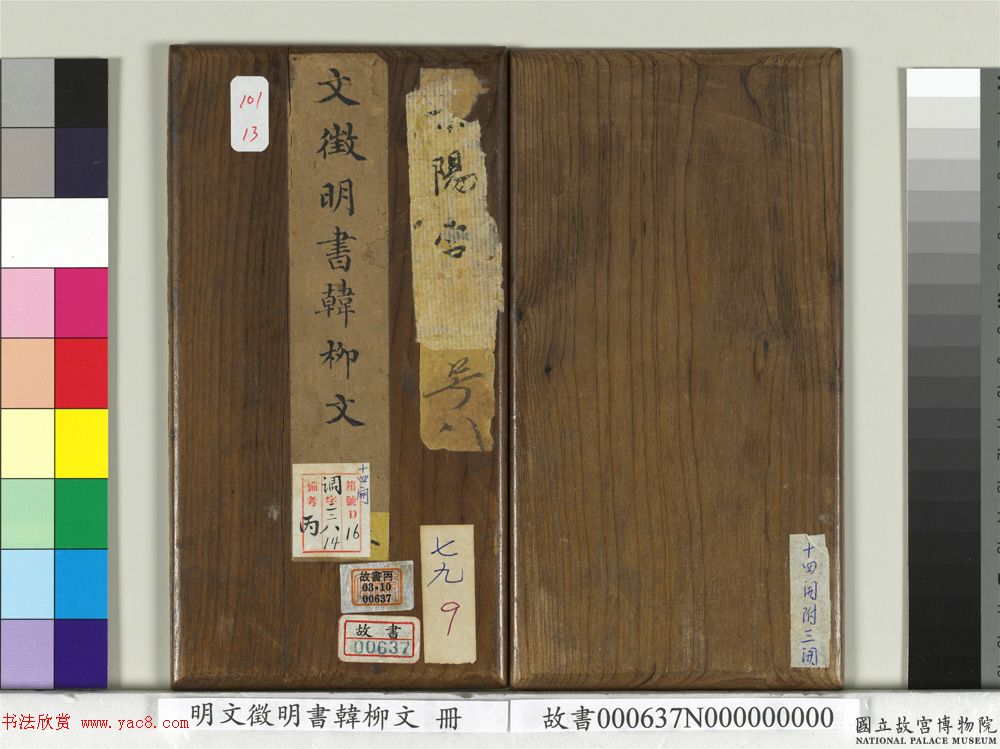 101
13
文徵明書韓柳文
陽宫
号八
十四開
箱號D16
调字三八14
備考 丙
故書丙
03•10
00637
故書
00637
七九
9
十四開附三開
明文徵明書韓柳文 冊
故書000637N000000000
书法欣赏 www.yac8.com
國立故宮博物院
NATIONAL PALACE MUSEUM